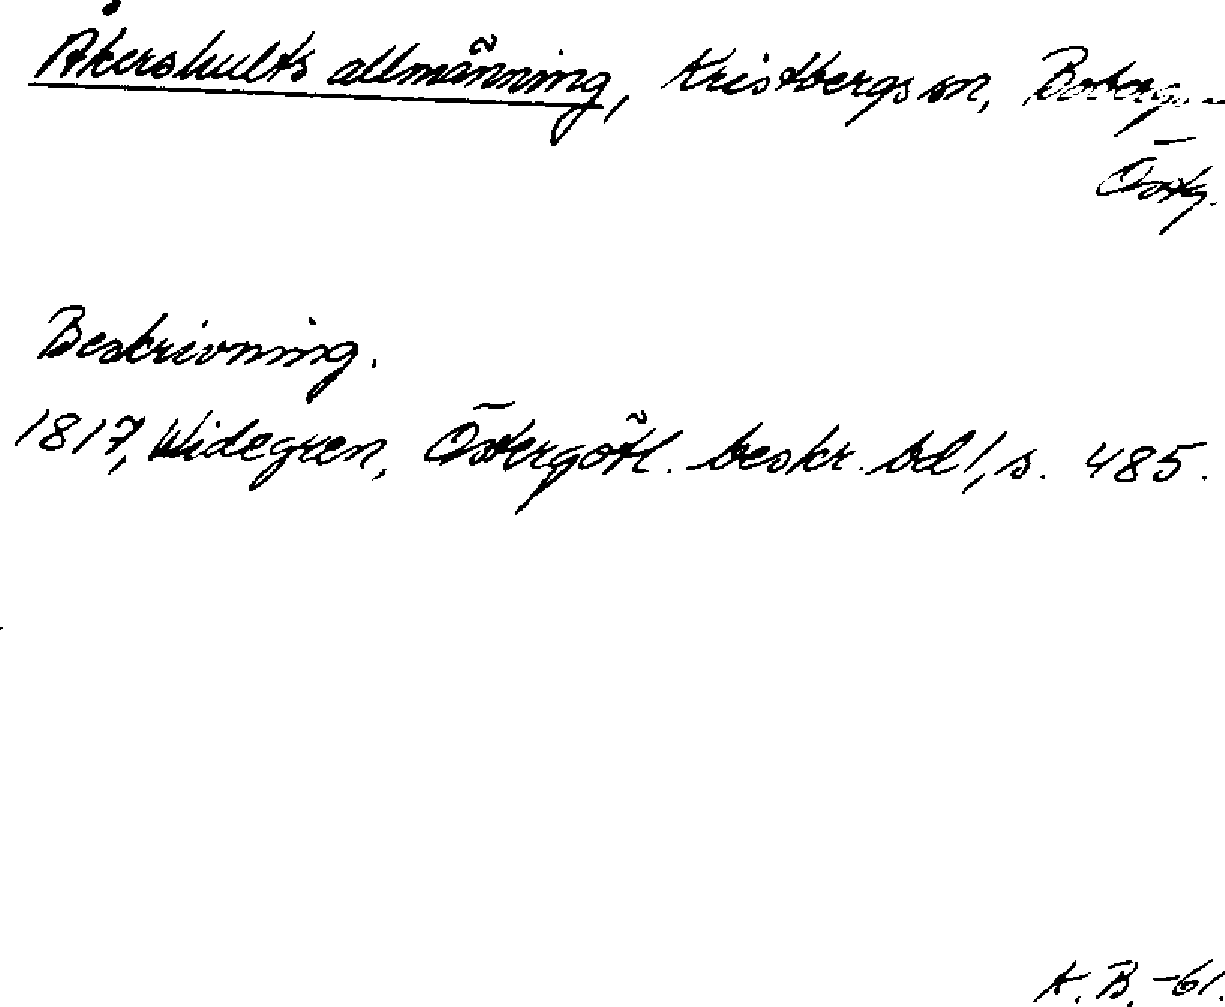 Åkershults allmänning, Kristbergs sn, Bobergs
Östg.
Beskrivning.
1817, Widegren, Östergötl. beskr. bd 1, s. 485.
A. B. -61.